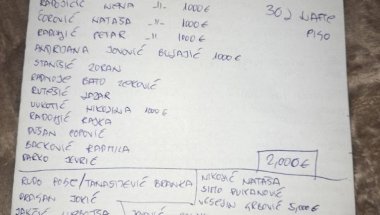 RADOJIČIĆ NENA -11- 1000€
ĆOROVIĆ NATAŠA -11- 1000€
RADOJIČIĆ PETAR -11- 1000€
ANDRIJANA JOVOVIĆ BUJAJIĆ 1000€
STANIŠIĆ ZORAN
RADNOJE BATO ZEKOVIĆ
RUTEŠIĆ LAZAR
VUKOTIĆ NIKOLINA 1000€
RADOJIČIĆ RAJKA
DUŠAN POPOVIĆ
BAĆKOVIĆ RADMILA
DARKO JEVRIĆ
30J NAFTE
PISO
2,000€
RUDO POBE/TANASIJEVIĆ BRANKA
DRAGAN JOKIĆ
NIKOLIĆ NATAŠA
SIMO ĐUKANOVIĆ
VESELIN GRBOVIĆ 5,000€